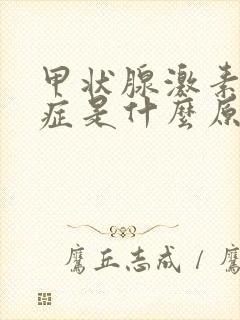 甲状腺激素
症是什麼原
鷹丘志成 / 鷹